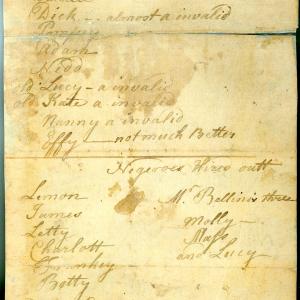 Dick - almost a invalid
Pompey
Adam
Nedd
old Lucy - a invalid
old Kate a invalid
Nanny a invalid
Effy - not much Better
Negeroes hires out
Lemon
James
Letty
Charlott
Betty
Mr Bellinis three
Molly -
and Lucy -